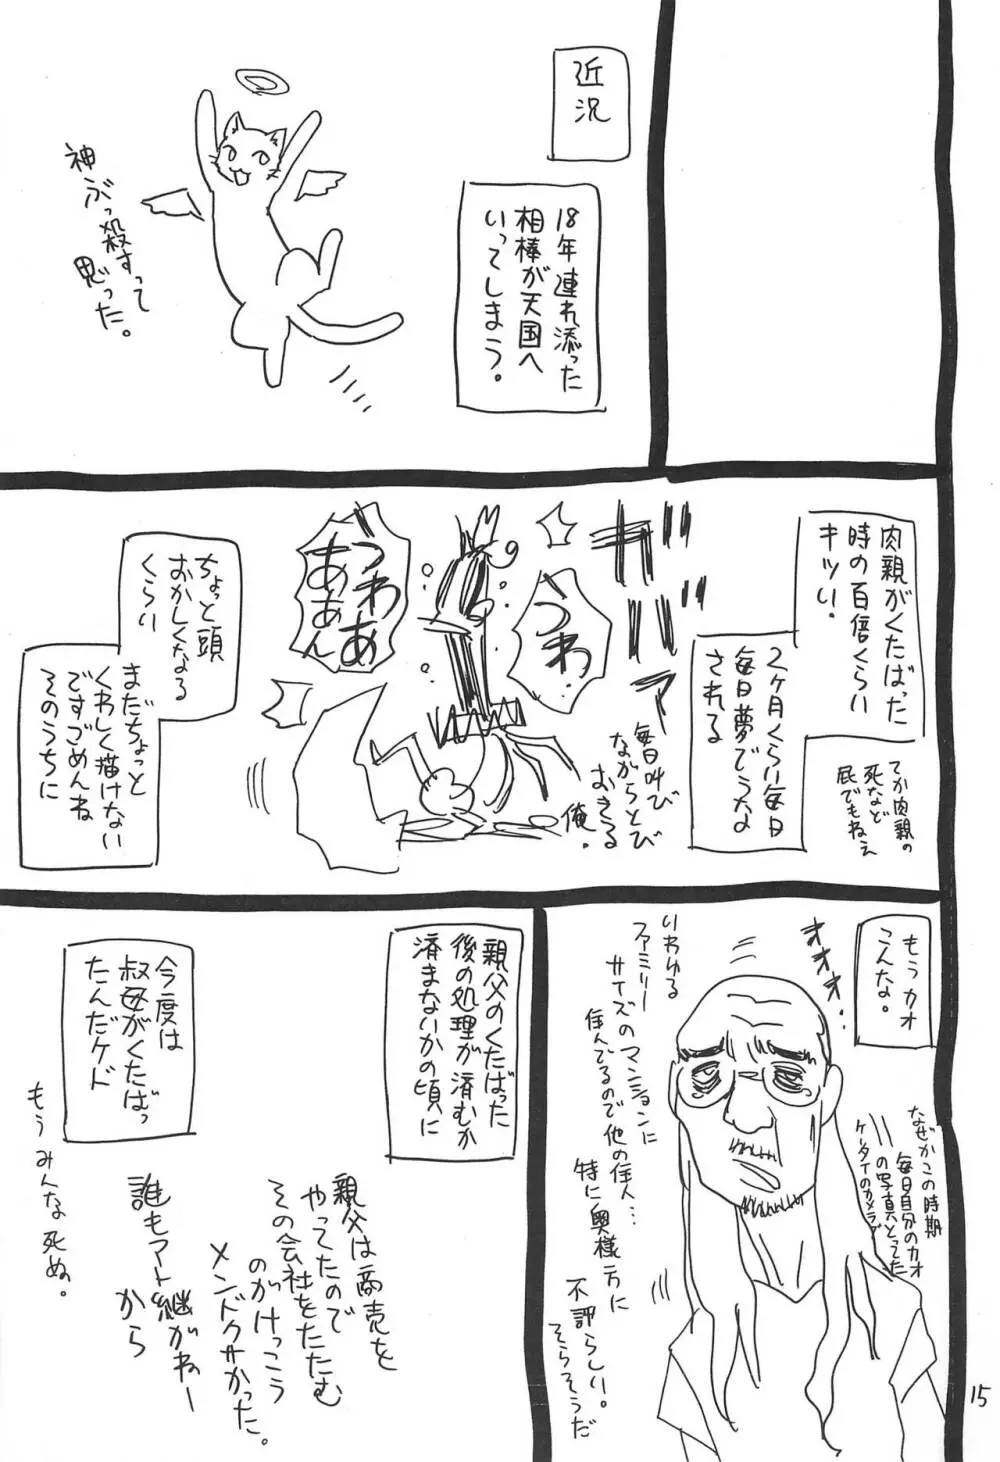 近況
18年連れ添った
相棒が天国へ
いってしまう。
神ぶっ殺すって
思った。
肉親がくたばった
時の百倍くらい
キツい。
てか肉親の
死など
屁でもねえ
2ヶ月くらい毎日
毎日夢でうな
される
ガバァ
毎日叫び
ながらとび
おきる
俺。
うわ
うわあ
ああん
ちょと頭
おかしくなる
くらい
まだちょっと
くわしく描けない
ですごめんね
そのうちに
もうカオ
こんな。
オオオ…
なぜかこの時期
毎日自分のカオ
の写真とってた
ケータイのカメラで
いわゆる
ファミリー
サイズのマンションに
住んでるので他の住人…
特に奥様方に
不評らしい。
そらそうだ
親父のくたばった
後の処理が済むか
済まないかの頃に
親父は商売を
やってたので
その会社をたたむ
のがけっこう
メンドクサかった。
誰もアト継がねー
から
今度は
叔母がくたばっ
たんだケド
もうみんな死ぬ。
15